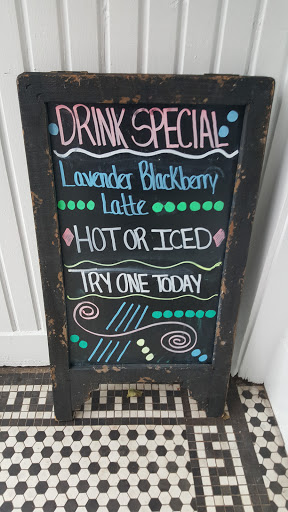 DRINK SPECIAL
Lavender Blackberry
Latte
HOT OR ICED
TRY ONE TODAY